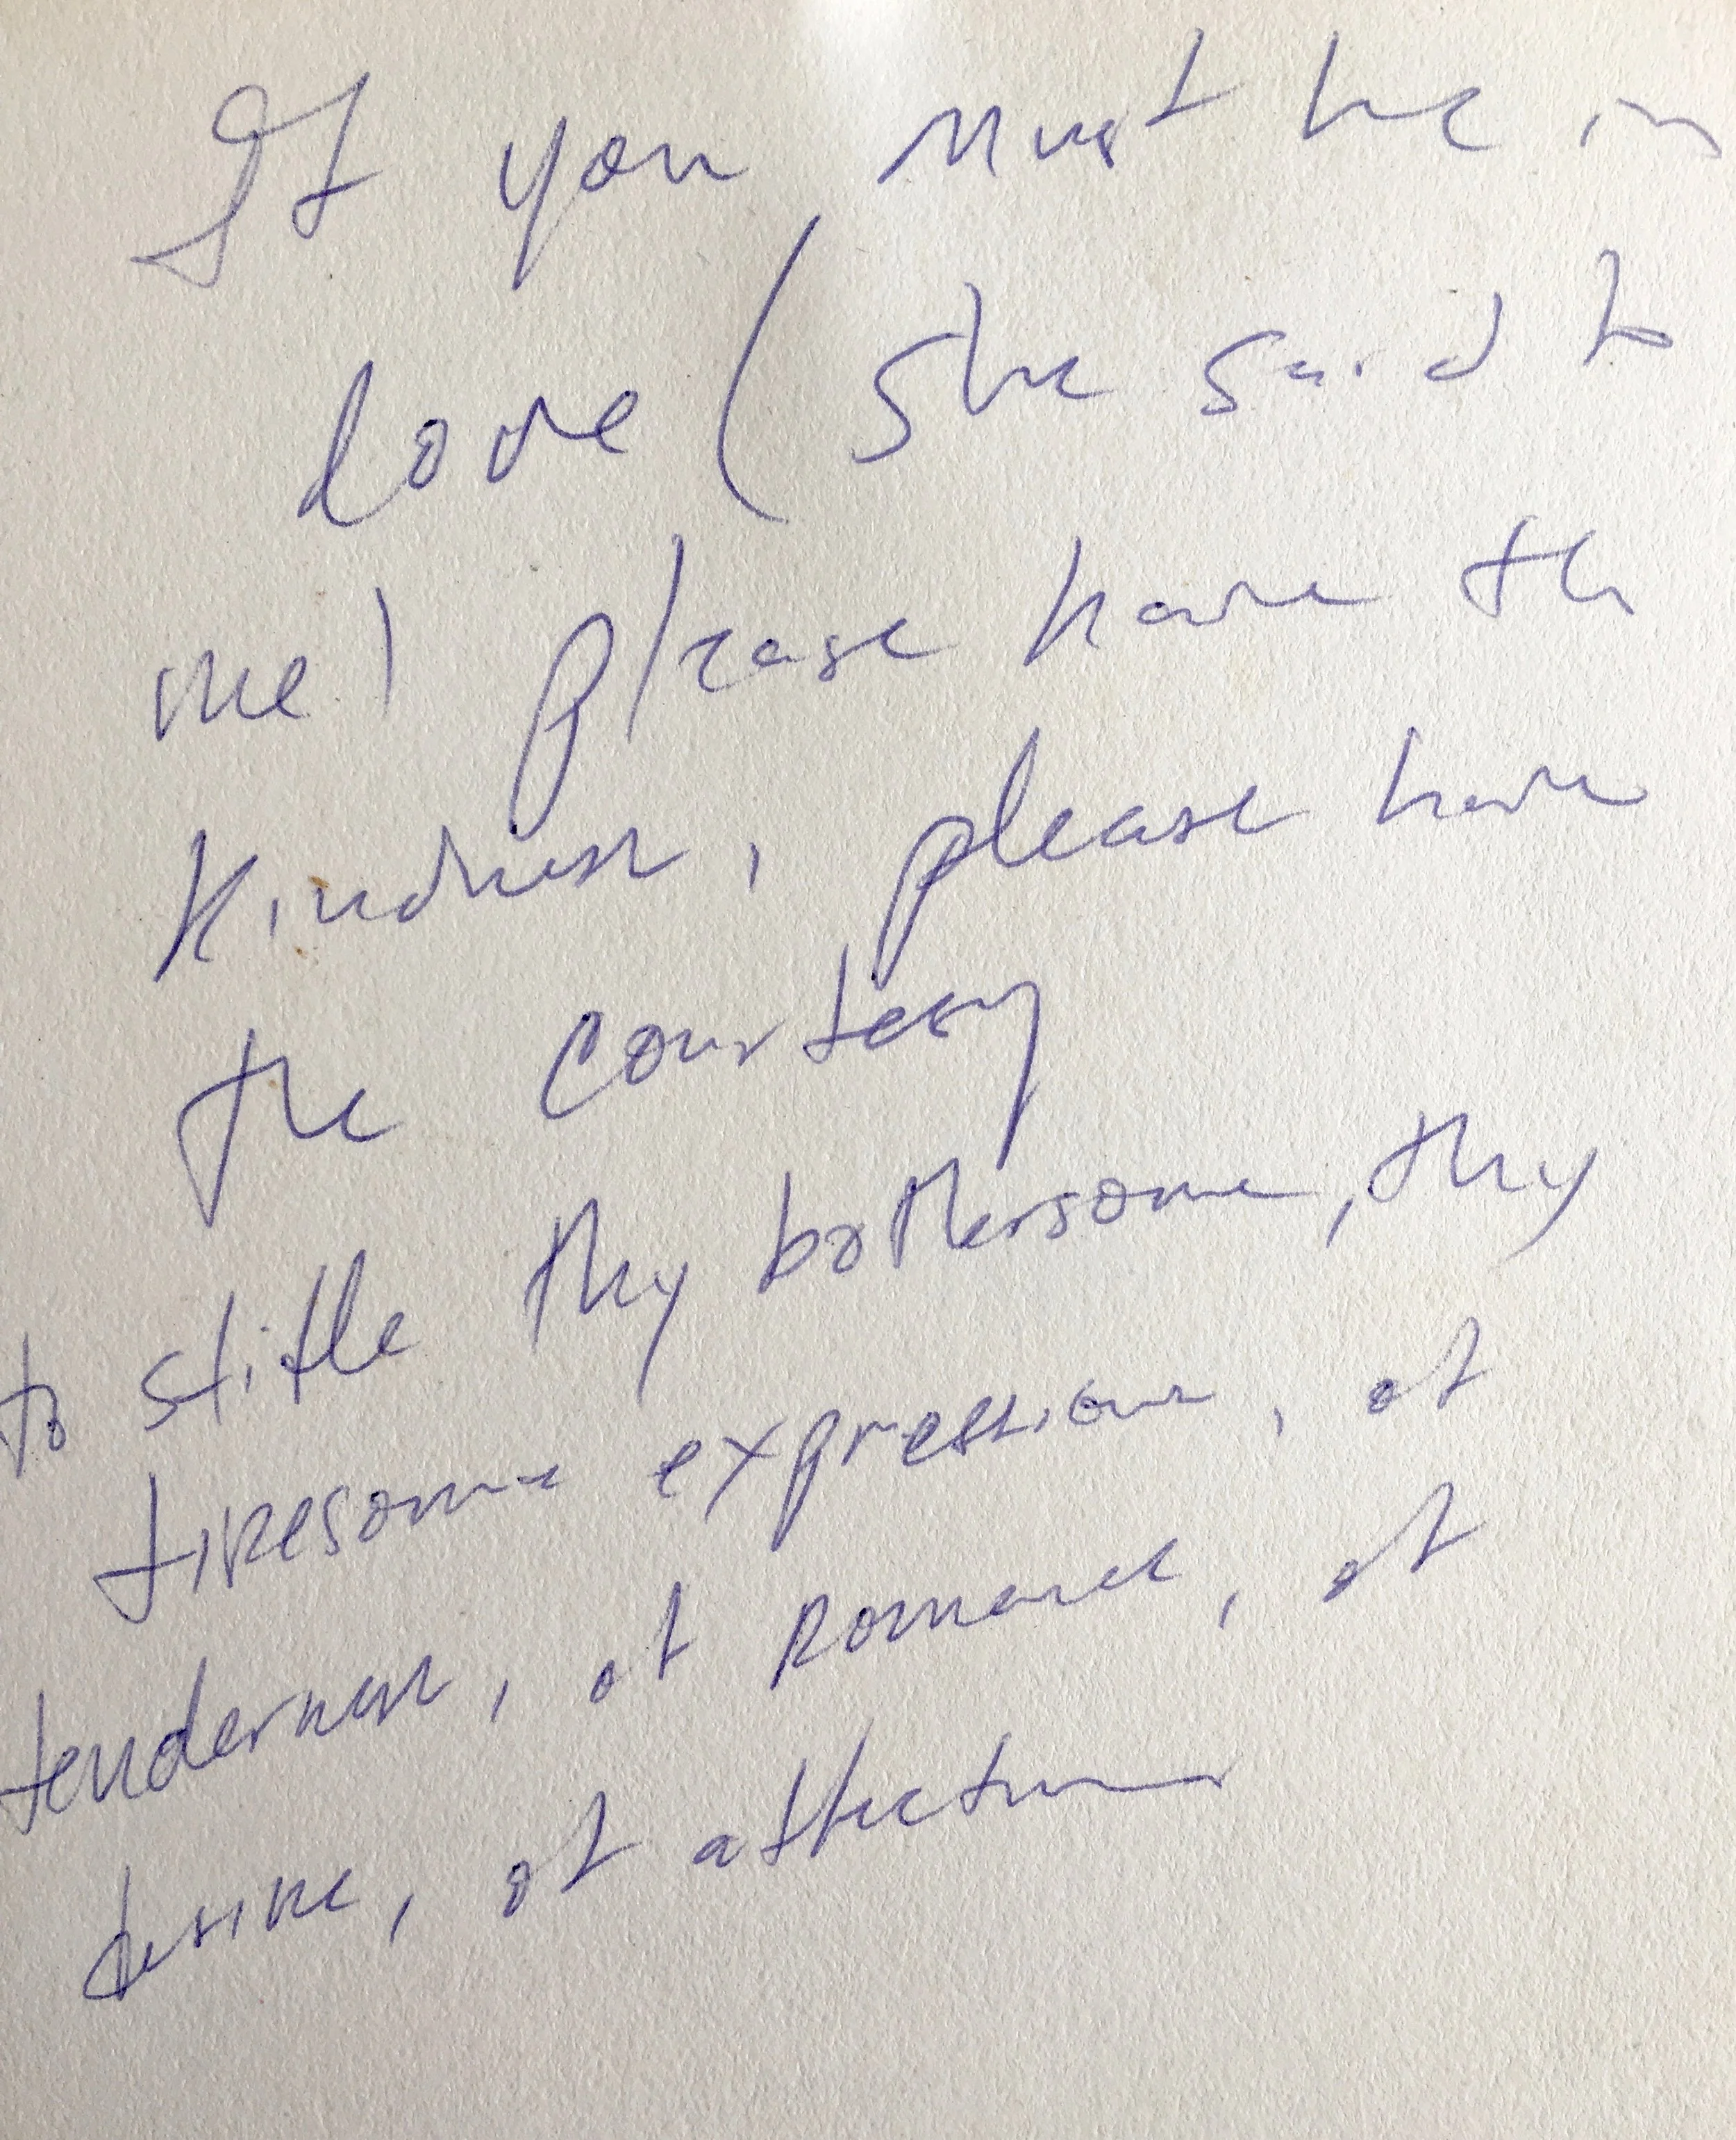 If you must be in
love (she said to
me) please have the
kindness, please have
the courtesy
to stifle thy bothersome, thy
tiresome expressions, of
tenderness, of romance, of
desire, of affection